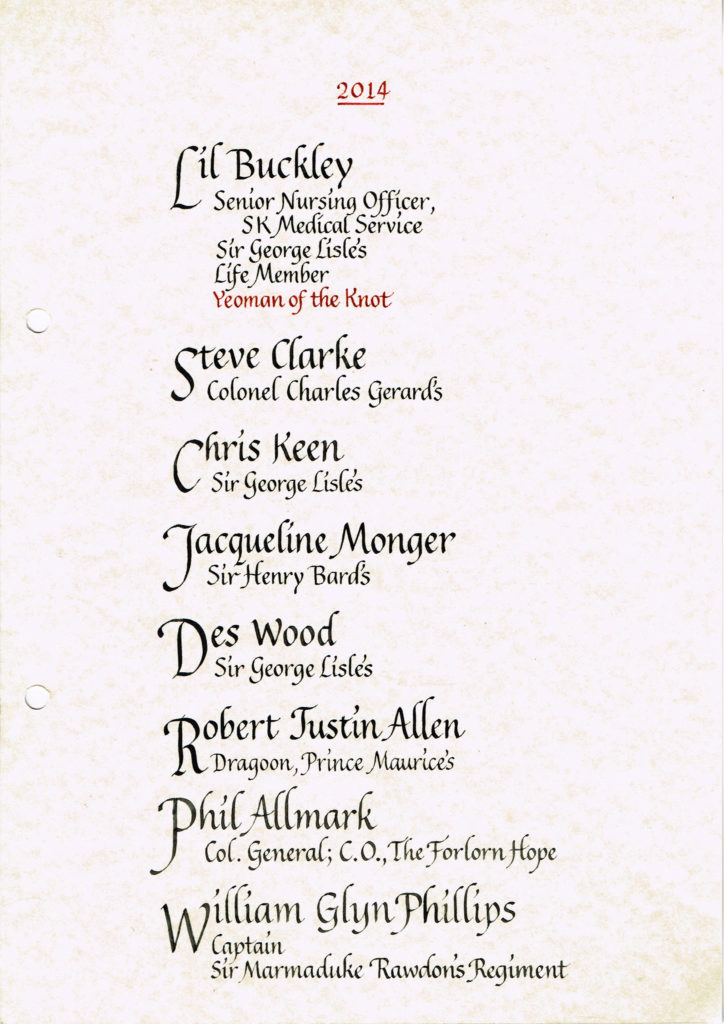 2014
Lil Buckley
Senior Nursing Officer,
SK Medical Service
Sir George Lisle's
Life Member
Yeoman of the Knot
Steve Clarke
Colonel Charles Gerard's
Chris Keen
Sir George Lisle's
Jacqueline Monger
Sir Henry Bard's
Des Wood
Sir George Lisle's
Robert Justin Allen
Dragoon, Prince Maurice's
Phil Allmark
Col. General; C.O., The Forlorn Hope
William Glyn Phillips
Captain
Sir Marmaduke Rawdon's Regiment